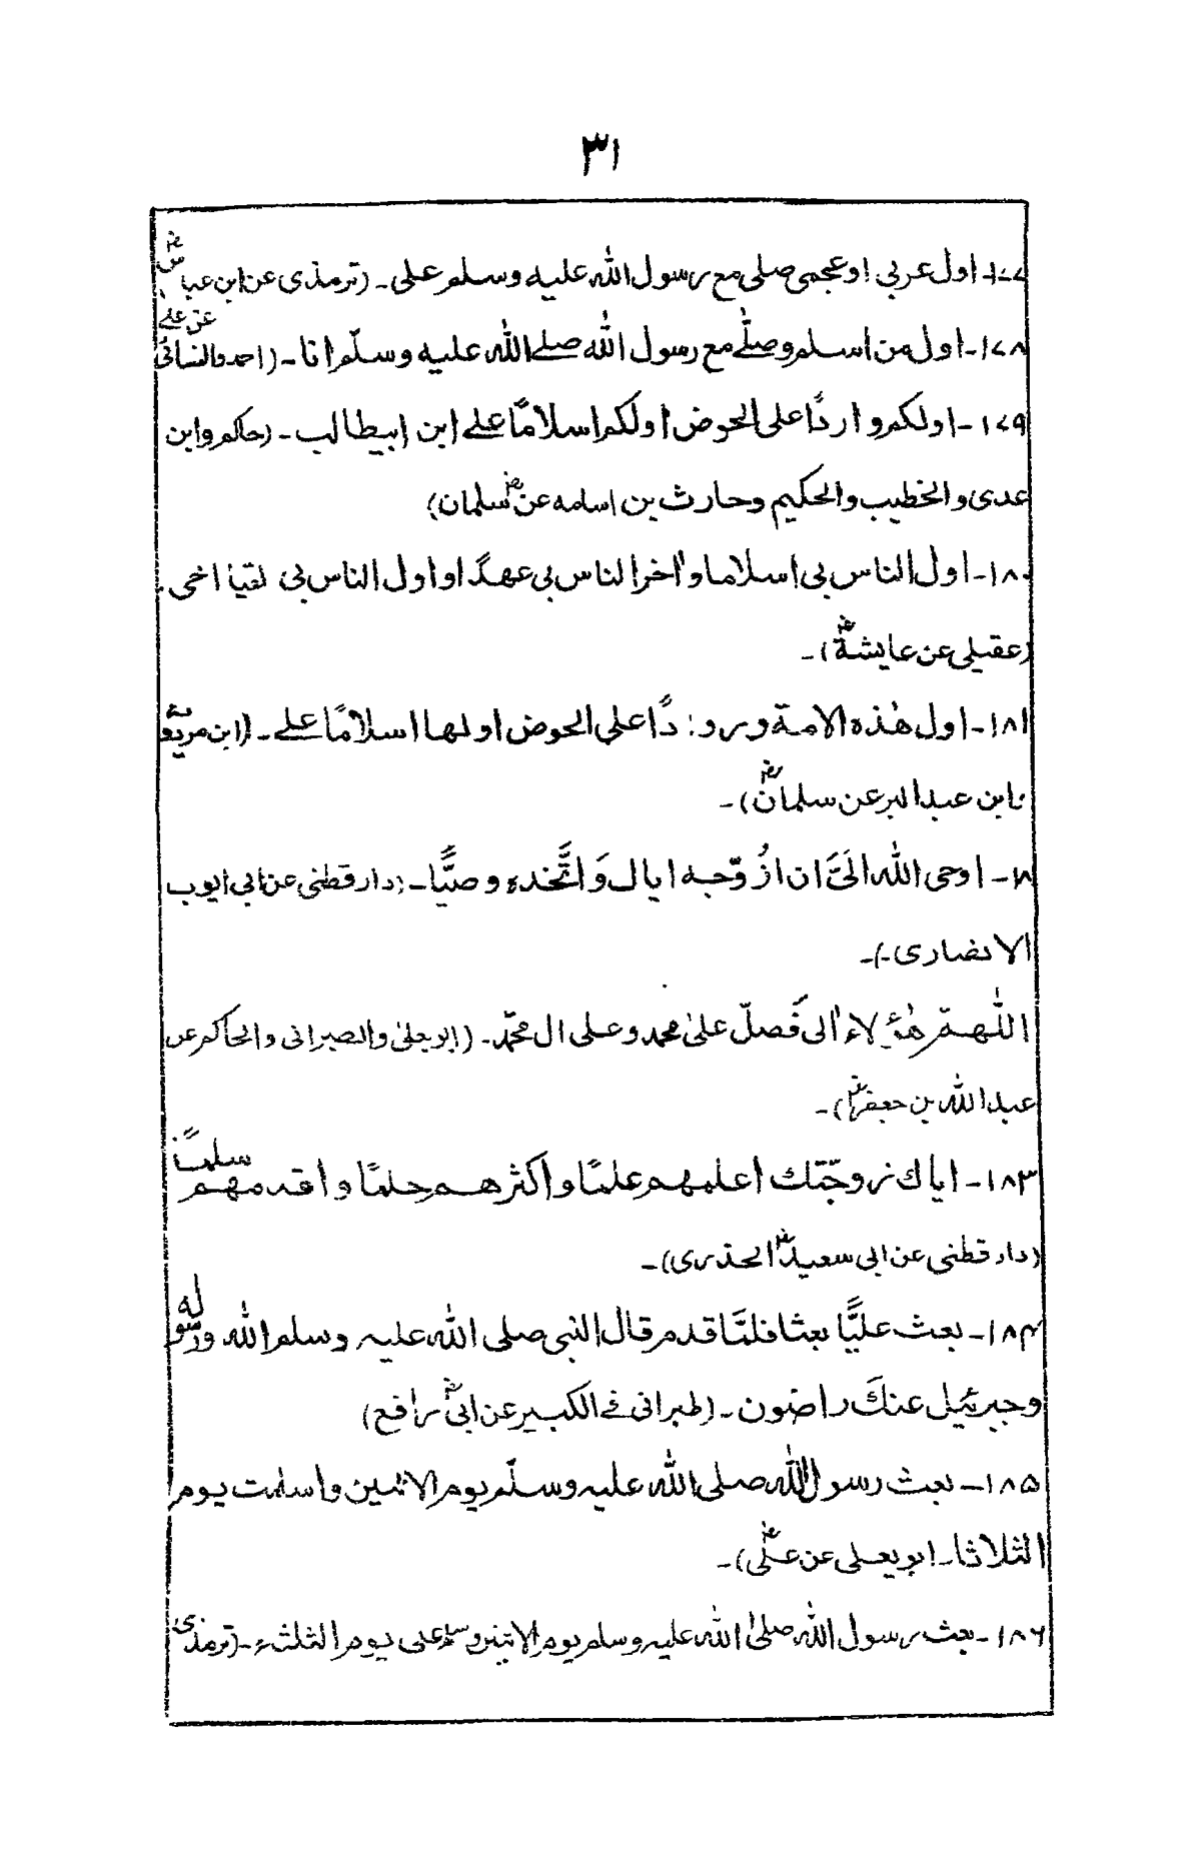 ٣١
١٧٧- اول عربی اوعجمی صلی مع رسول الله علیه وسلم علی - (ترمذی عن ابن عباسؓ)
١٧٨- اول من اسلم وصلّے مع رسول الله صلے الله علیه وسلّم انا - (احمد والنسائی عن علے
١٧٩- اولکم وارداً علی الحوض اولکم اسلاماً علے ابن ابیطالب - (حاکم وابن
عدی والخطیب والحکیم وحارث بن اسامه عن سلمانؓ)
١٨٠- اول الناس بی اسلاما واٰخر الناس بی عهدًا واول الناس بی لقیا اخی.
(عقیلی عن عایشةؓ) -
١٨١- اول هٰذه الامة ورودًا علی الحوض اولها اسلامًا علے - (ابن
وابن عبد البر عن سلمانؓ) -
- اوحی الله الَیَّ ان ازُوّجه ایاك وَاتَّخذه وصیًّا - (دار قطنی عن ابی ایوب
الانصاری -) -
اللّٰهمّ هٰؤلاء اٰلی فَصلّ علیٰ محمد وعلی ال محمّد - (ابو یعلیٰ والطبرانی والحاکم عن
عبد الله بن جعفرؓ) -
١٨٣- ایاك زوجّتك اعلمهم علمًا واکثرهم حلمًا واقدمهم سلمًا
(دار قطنی عن ابی سعیدؓ الخذری) -
١٨٤- بعث علیًّا بعثا فلمّا قدم قال النبی صلی الله علیه وسلم الله ورسوله
وجبرئیل عنكَ راضون - (طبرانی فے الکبیر عن ابیؓ رافع)
١٨٥- بعث رسول الله صلی الله علیه وسلّم یوم الاثنین واسلمت یوم
الثلاثا - ابو یعلی عن علیؓ) -
١٨٦- بعث رسول الله صلیٰ الله علیه وسلم یوم الاثنین وسلم علی یوم الثلثٰء - (ترمذی